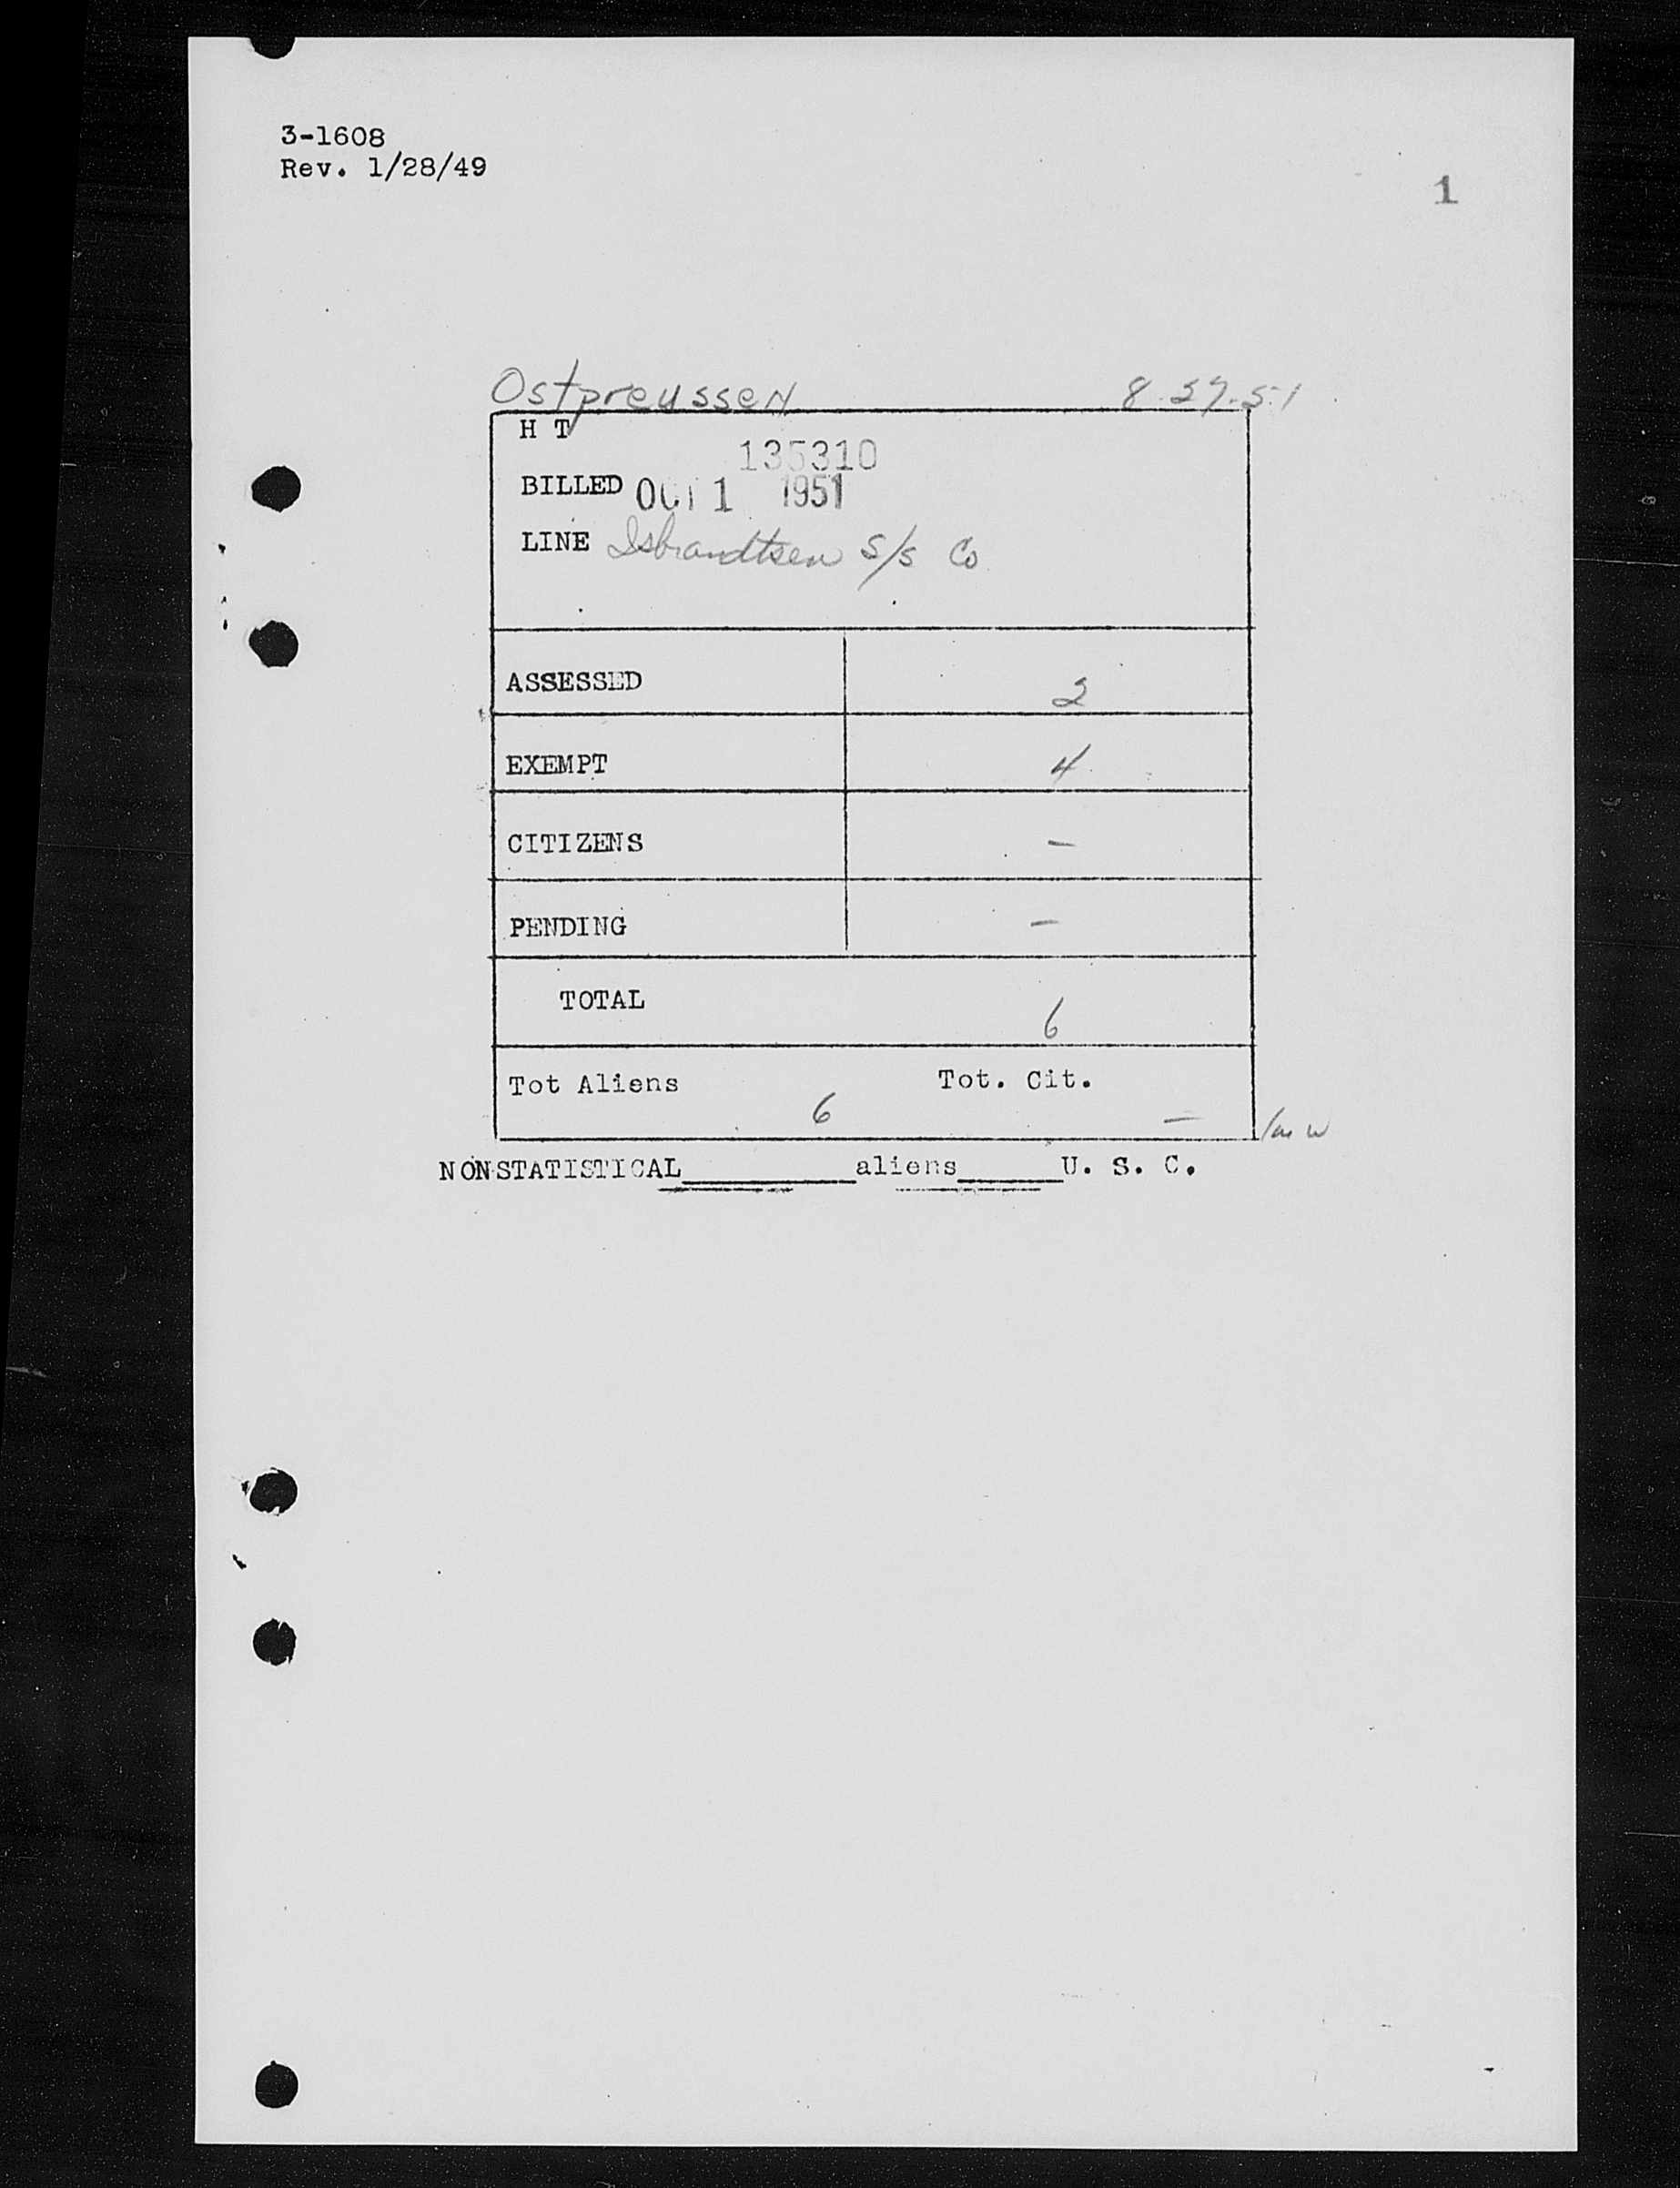 3-1608
Rev. 1/28/49
1
Ostpreussen 8.27.51
H T
135310
BILLED OCT 1 1951
LINE Isbrandtsen S/S Co
ASSESSED 2
EXEMPT 4
CITIZENS –
PENDING –
TOTAL 6
Tot Aliens 6 Tot. Cit. –
NONSTATISTICAL__________aliens______U. S. C.